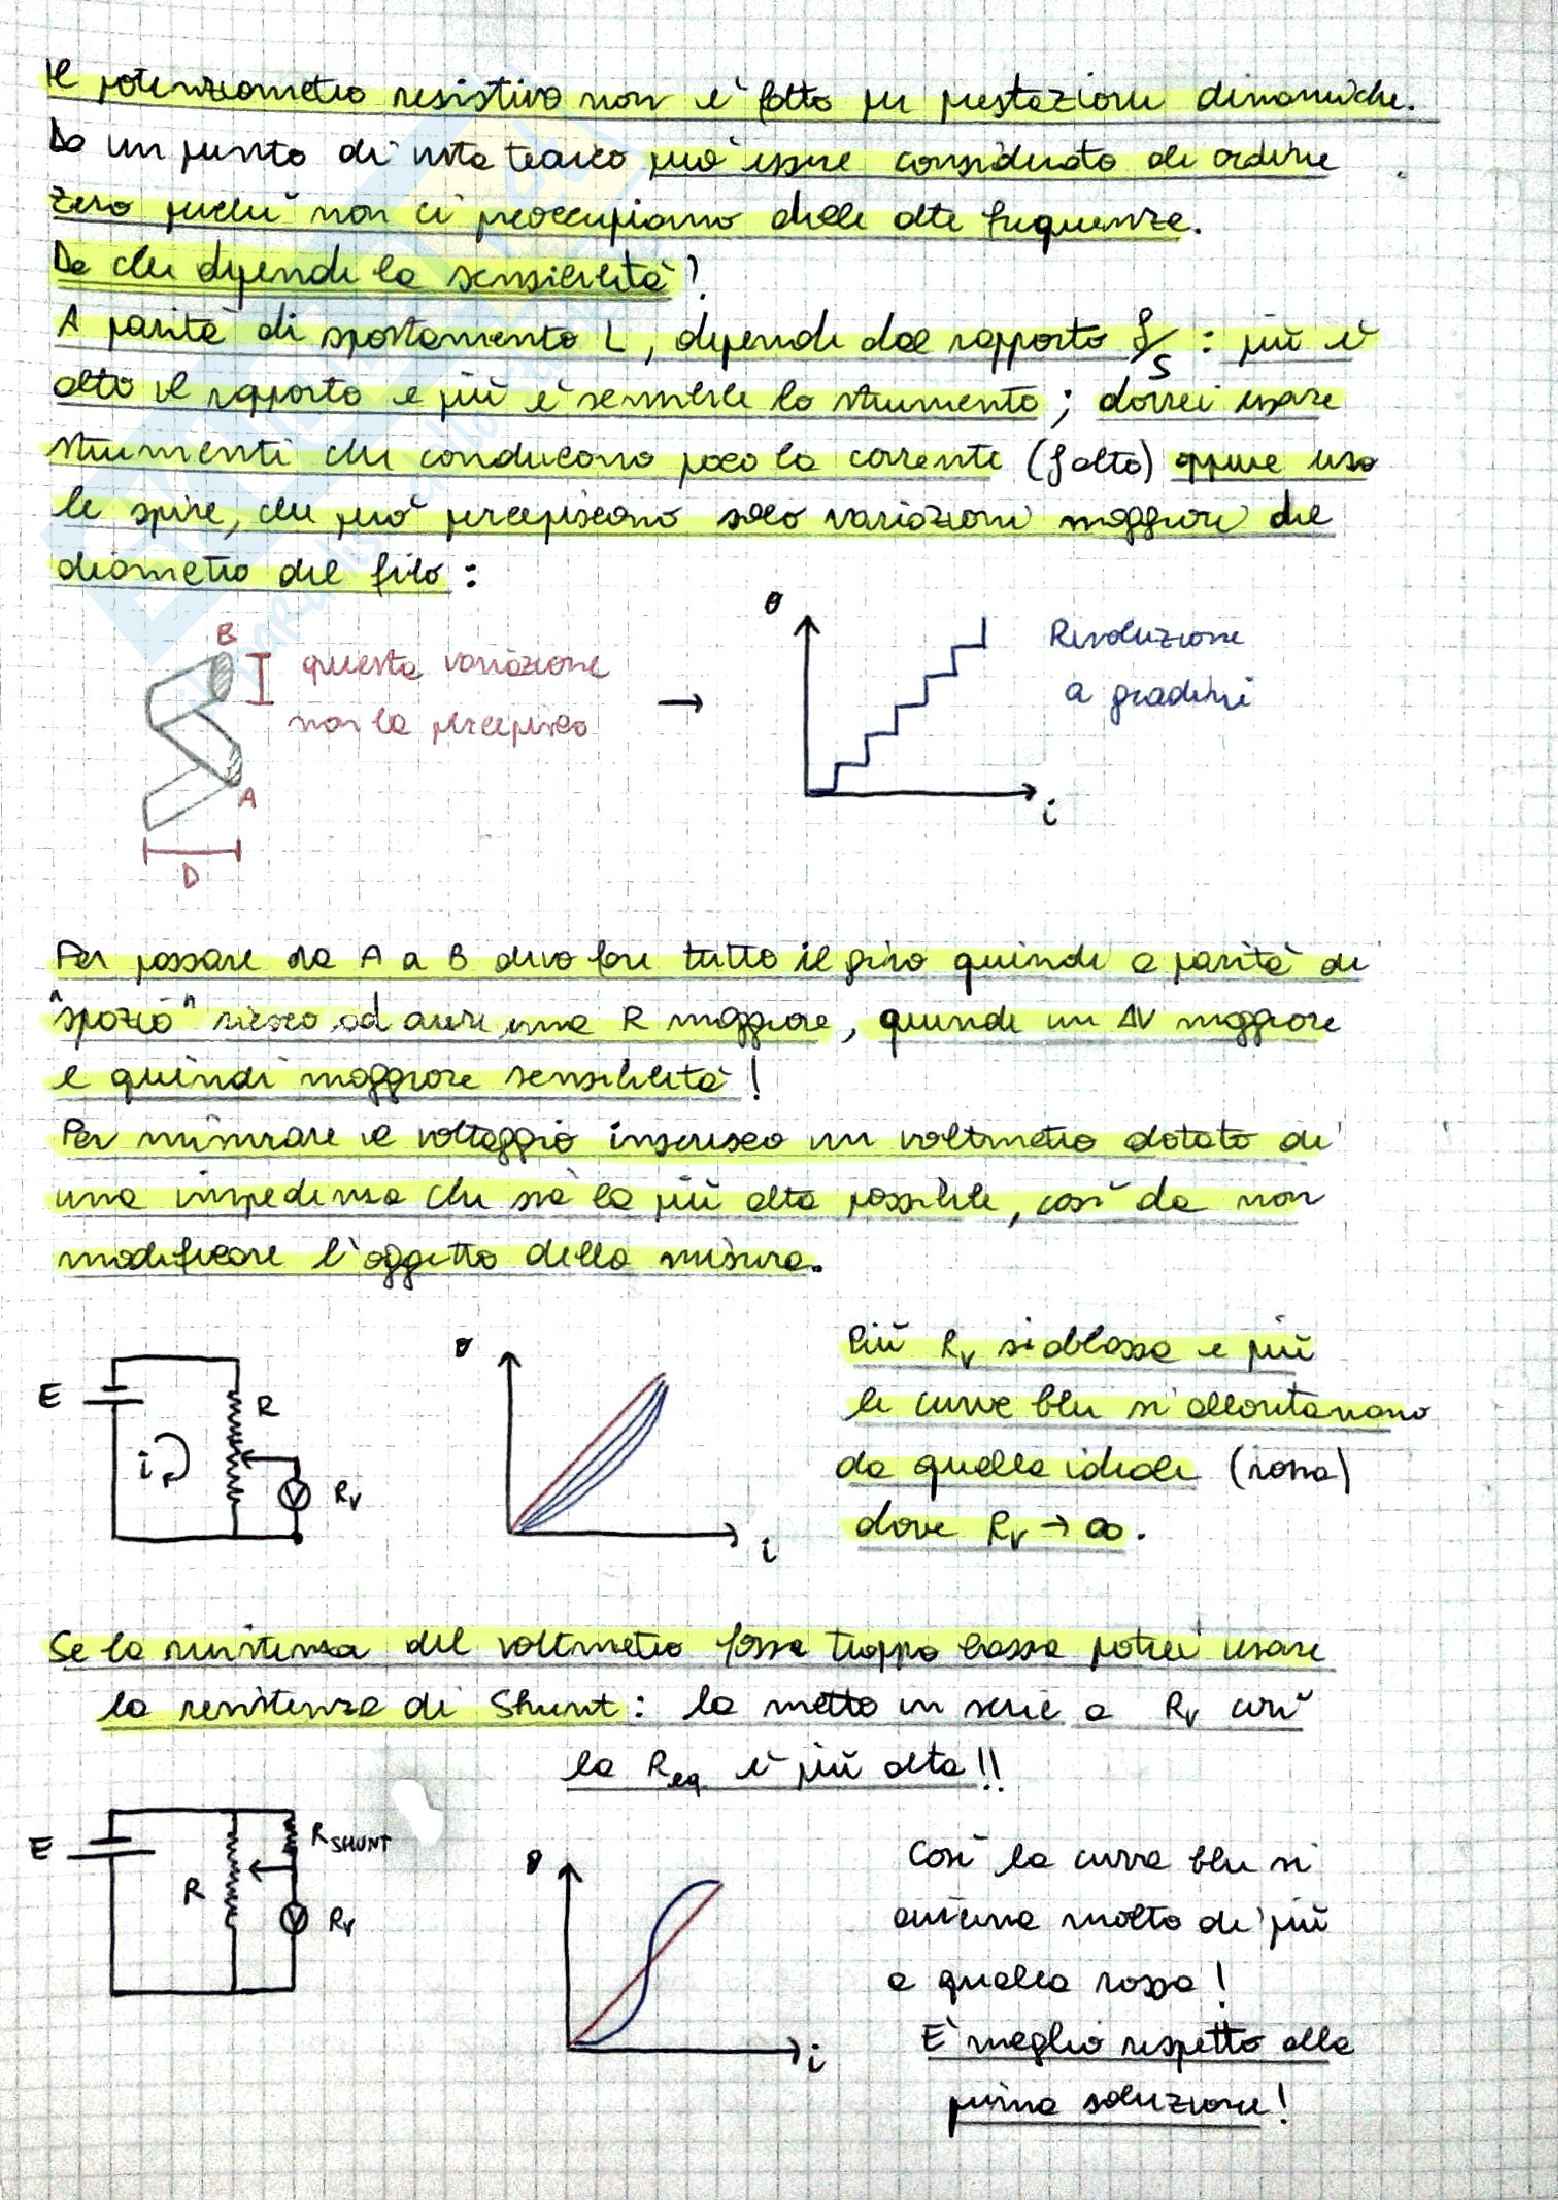 Il potenziometro resistivo non è fatto per prestazioni dinamiche.
Da un punto di vista teorico può essere considerato di ordine
zero perché non ci preoccupiamo delle alte frequenze.
Da che dipende la sensibilità?
A parità di spostamento L, dipende dal rapporto ρ/S : più è
alto il rapporto e più è sensibile lo strumento; dovrei usare
strumenti che conducono poco la corrente (ρ alto) oppure uso
le spire, che però percepiscono solo variazioni maggiori del
diametro del filo:
B
questa variazione
non la percepisco
→
A
D
θ
i
Risoluzione
a gradini
Per passare da A a B devo fare tutto il giro quindi a parità di
"spazio" riesco ad avere una R maggiore, quindi un ΔV maggiore
e quindi maggiore sensibilità!
Per misurare il voltaggio inserisco un voltmetro dotato di
una impedenza che sia la più alta possibile, così da non
modificare l'oggetto della misura.
E
i
R
V
Rv
i
Più Rv si abbassa e più
le curve blu si allontanano
da quella ideale (rossa)
dove Rv → ∞.
Se la resistenza del voltmetro fosse troppo bassa potrei usare
la resistenza di Shunt: la metto in serie a Rv così
la Req è più alta!!
E
R
RSHUNT
V
Rv
i
Così la curva blu si
avvicina molto di più
a quella rossa!
E' meglio rispetto alla
prima soluzione!